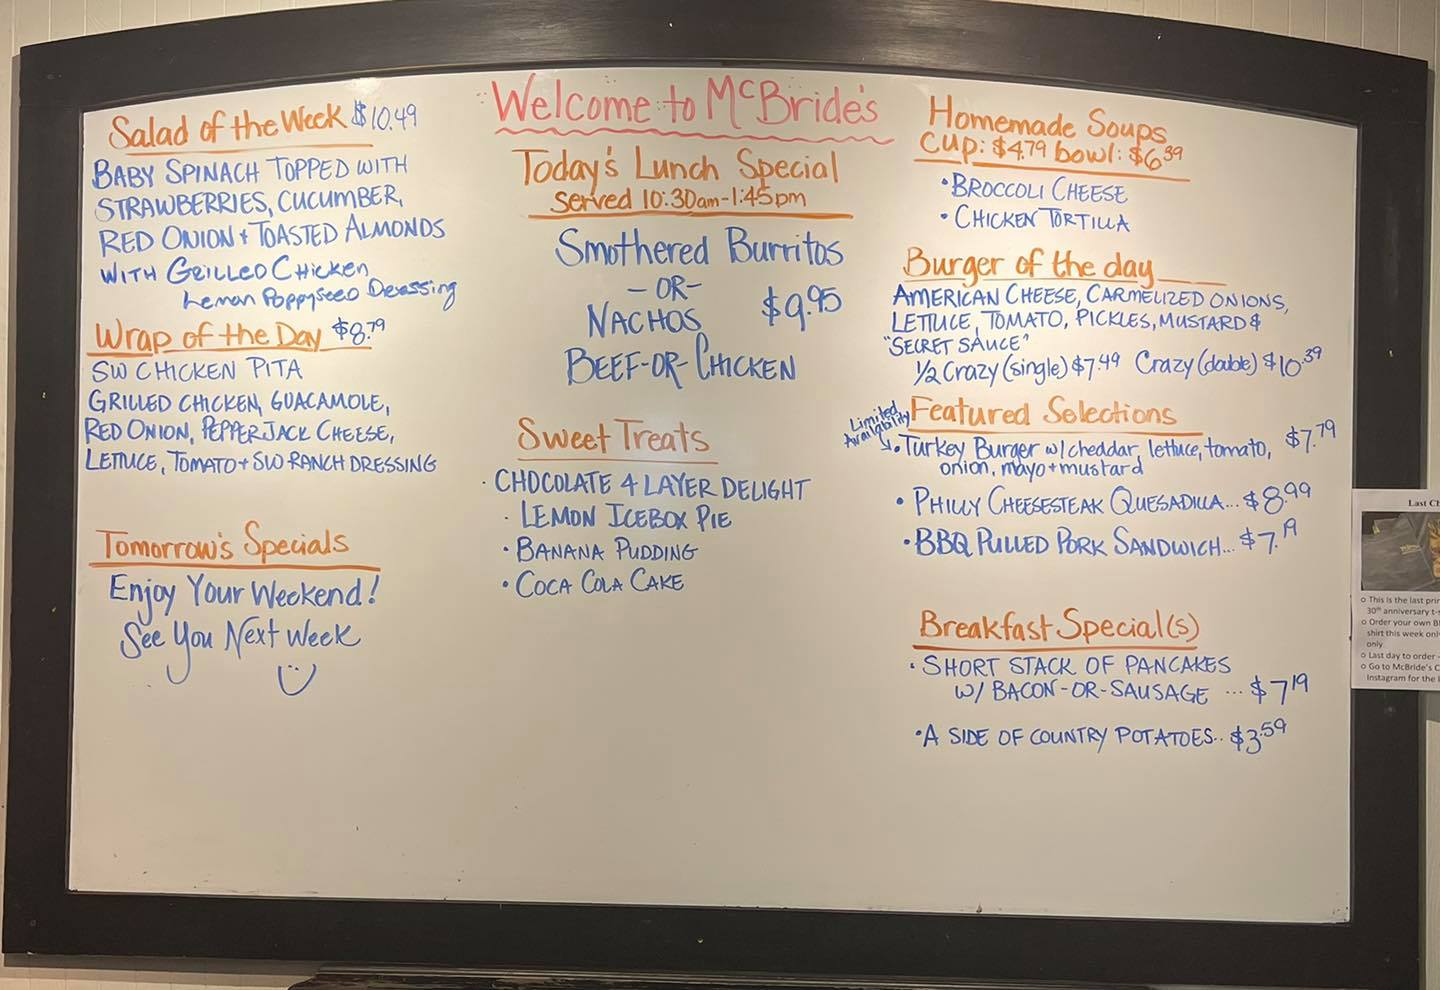 Welcome to McBride's
Salad of the Week $10.49
BABY SPINACH TOPPED WITH
STRAWBERRIES, CUCUMBER,
RED ONION + TOASTED ALMONDS
WITH GRILLED CHICKEN
Lemon Poppyseed Dressing
Wrap of the Day $8.79
SW CHICKEN PITA
GRILLED CHICKEN, GUACAMOLE,
RED ONION, PEPPERJACK CHEESE,
LETTUCE, TOMATO + SW RANCH DRESSING
Tomorrow's Specials
Enjoy Your Weekend!
See You Next Week
Today's Lunch Special
Served 10:30am-1:45pm
Smothered Burritos
-OR-
NACHOS $9.95
BEEF-OR-CHICKEN
Sweet Treats
· CHOCOLATE 4 LAYER DELIGHT
· LEMON ICEBOX PIE
• BANANA PUDDING
• COCA COLA CAKE
Homemade Soups
Cup: $4.79 bowl: $6.39
• BROCCOLI CHEESE
• CHICKEN TORTILLA
Burger of the day
AMERICAN CHEESE, CARMELIZED ONIONS,
LETTUCE, TOMATO, PICKLES, MUSTARD &
"SECRET SAUCE"
1/2 Crazy (single) $7.49 Crazy (double) $10.39
Featured Selections
Limited
Availability
• Turkey Burger w/ cheddar, lettuce, tomato, $7.79
onion, mayo + mustard
• PHILLY CHEESESTEAK QUESADILLA... $8.99
• BBQ PULLED PORK SANDWICH... $7.19
Breakfast Special(s)
• SHORT STACK OF PANCAKES
W/ BACON-OR-SAUSAGE ... $7.19
• A SIDE OF COUNTRY POTATOES.. $3.59
Last
This is the last
30th anniversary
Order your own
shirt this week
only
Last day to order
Go to McBride's
Instagram for the